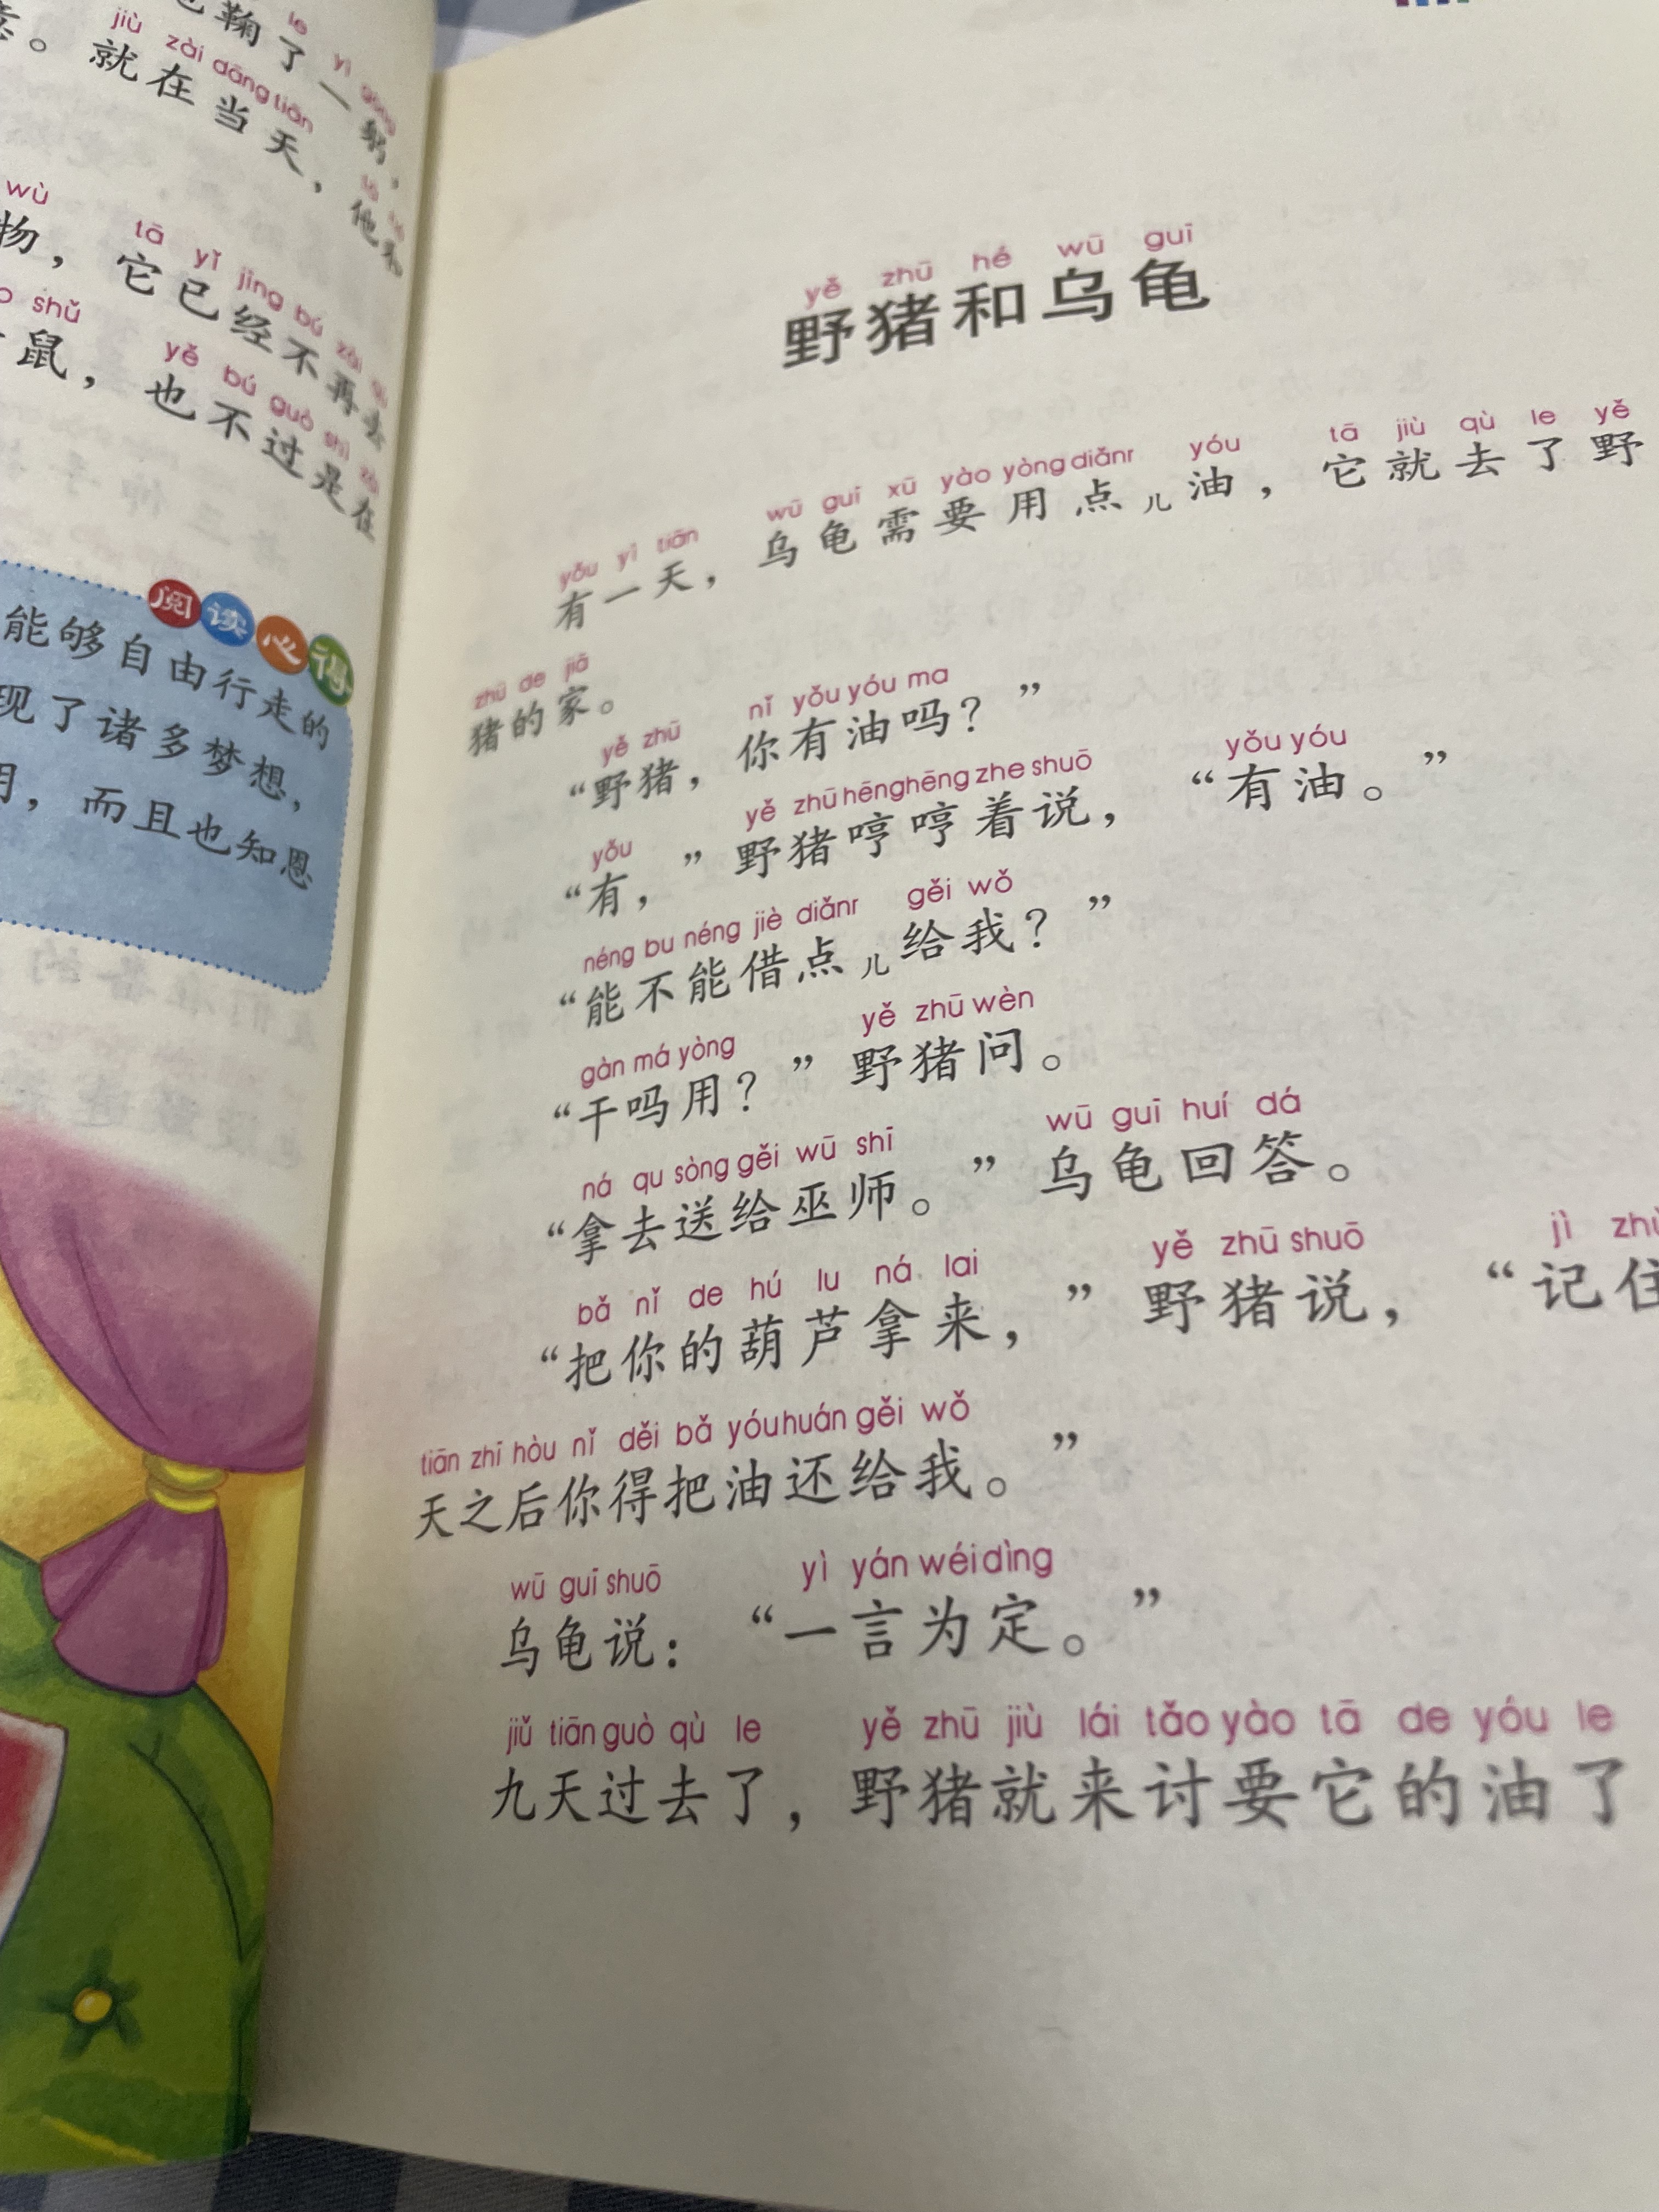 鞠了一躬，
jiù zài dāng tiān
。就在当天，他和
wù tā yǐ jīng bú zài qù
物，它已经不再去
shǔ yě bú guò shì zài
鼠，也不过是在
阅读心得
能够自由行走的
现了诸多梦想，
用，而且也知恩
yě zhū hé wū guī
野猪和乌龟
yǒu yì tiān wū guī xū yào yòng diǎnr yóu tā jiù qù le yě
有一天，乌龟需要用点儿油，它就去了野
zhū de jiā
猪的家。
yě zhū nǐ yǒu yóu ma
“野猪，你有油吗？”
yǒu yě zhū hēng hēng zhe shuō yǒu yóu
“有，”野猪哼哼着说，“有油。”
néng bu néng jiè diǎnr gěi wǒ
“能不能借点儿给我？”
gàn má yòng yě zhū wèn
“干吗用？”野猪问。
ná qu sòng gěi wū shī wū guī huí dá
“拿去送给巫师。”乌龟回答。
bǎ nǐ de hú lu ná lai yě zhū shuō jì
“把你的葫芦拿来，”野猪说，“记住
tiān zhī hòu nǐ děi bǎ yóu huán gěi wǒ
天之后你得把油还给我。”
wū guī shuō yì yán wéi dìng
乌龟说：“一言为定。”
jiǔ tiān guò qù le yě zhū jiù lái tǎo yào tā de yóu le
九天过去了，野猪就来讨要它的油了